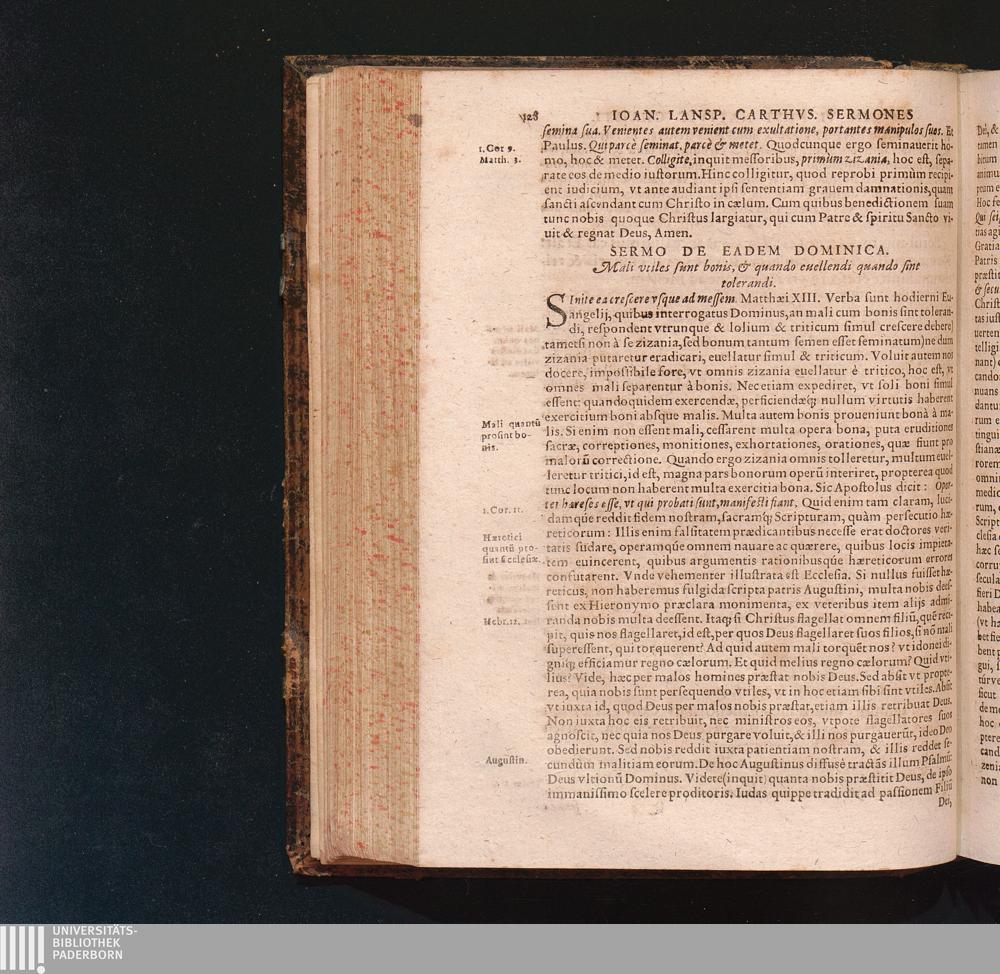 128 IOAN. LANSP. CARTHVS. SERMONES
semina sua. Venientes autem venient cum exultatione, portantes manipulos suos. Et
1. Cor 9. Paulus. Qui parcè seminat, parcè & metet. Quodcunque ergo seminauerit ho-
Matth. 3. mo, hoc & metet. Colligite, inquit messoribus, primùm zizania, hoc est, sepa-
rate eos de medio iustorum. Hinc colligitur, quod reprobi primùm recipi-
ent iudicium, vt ante audiant ipsi sententiam grauem damnationis, quam
sancti ascendant cum Christo in cælum. Cum quibus benedictionem suam
tunc nobis quoque Christus largiatur, qui cum Patre & spiritu Sancto vi-
uit & regnat Deus, Amen.
SERMO DE EADEM DOMINICA.
Mali vtiles sunt bonis, & quando euellendi quando sint
tolerandi.
SInite ea crescere vsque ad messem. Matthæi XIII. Verba sunt hodierni Eu-
angelij, quibus interrogatus Dominus, an mali cum bonis sint toleran-
di, respondent vtrunque & lolium & triticum simul crescere debere(
tametsi non à se zizania, sed bonum tantum semen esset seminatum)ne dum
zizania putaretur eradicari, euellatur simul & triticum. Voluit autem nos
docere, impossibile fore, vt omnis zizania euellatur è tritico, hoc est, vt
omnes mali separentur à bonis. Nec etiam expediret, vt soli boni simul
essent: quandoquidem exercendæ, perficiendæq́; nullum virtutis haberent
exercitium boni absque malis. Multa autem bonis proueniunt bonà à ma-
Mali quantũ lis. Si enim non essent mali, cessarent multa opera bona, puta eruditiones
prosint bo- sacræ, correptiones, monitiones, exhortationes, orationes, quæ fiunt pro
nis. malorũ correctione. Quando ergo zizania omnis tolleretur, multum euel-
leretur tritici, id est, magna pars bonorum operũ interiret, propterea quod
tunc locum non haberent multa exercitia bona. Sic Apostolus dicit: Opor-
1. Cor. 11. ter hæreses esse, vt qui probati sunt, manifesti fiant. Quid enim tam claram, luci-
damqúe reddit fidem nostram, sacramq́; Scripturam, quàm persecutio hæ-
Hæretici reticorum: Illis enim falsitatem prædicantibus necesse erat doctores veri-
quantũ pro- tatis sudare, operamqúe omnem nauare ac quærere, quibus locis impieta-
sint Ecclesiæ. tem euincerent, quibus argumentis rationibusqúe hæreticorum errores
confutarent. Vnde vehementer illustrata est Ecclesia. Si nullus fuisset hæ-
reticus, non haberemus fulgida scripta patris Augustini, multa nobis dees-
sent ex Hieronymo præclara monimenta, ex veteribus item alijs admi-
Hebr. 12. randa nobis multa deessent. Itaq; si Christus flagellat omnem filiũ, quẽ reci-
pit, quis nos flagellaret, id est, per quos Deus flagellaret suos filios, si nõ mali
superessent, qui torquerent? Ad quid autem mali torquẽt nos? vt idonei di-
gniq́; efficiamur regno cælorum. Et quid melius regno cælorum? Quid vti-
lius? Vide, hæc per malos homines præstat nobis Deus. Sed absit vt propte-
rea, quia nobis sunt persequendo vtiles, vt in hoc etiam sibi sint vtiles. Absit
vt iuxta id, quod Deus per malos nobis præstat, etiam illis retribuat Deus.
Non iuxta hoc eis retribuit, nec ministros eos, vtpote flagellatores suos
agnoscit, nec quia nos Deus purgare voluit, & illi nos purgauerũt, ideo Deo
obedierunt. Sed nobis reddit iuxta patientiam nostram, & illis reddet se-
Augustin. cundùm malitiam eorum. De hoc Augustinus diffusè tractãs illum Psalmũ:
Deus vltionũ Dominus. Videte(inquit) quanta nobis præstitit Deus, de ipso
immanissimo scelere proditoris. Iudas quippe tradidit ad passionem Filiũ
Dei,
UNIVERSITÄTS-
BIBLIOTHEK
PADERBORN